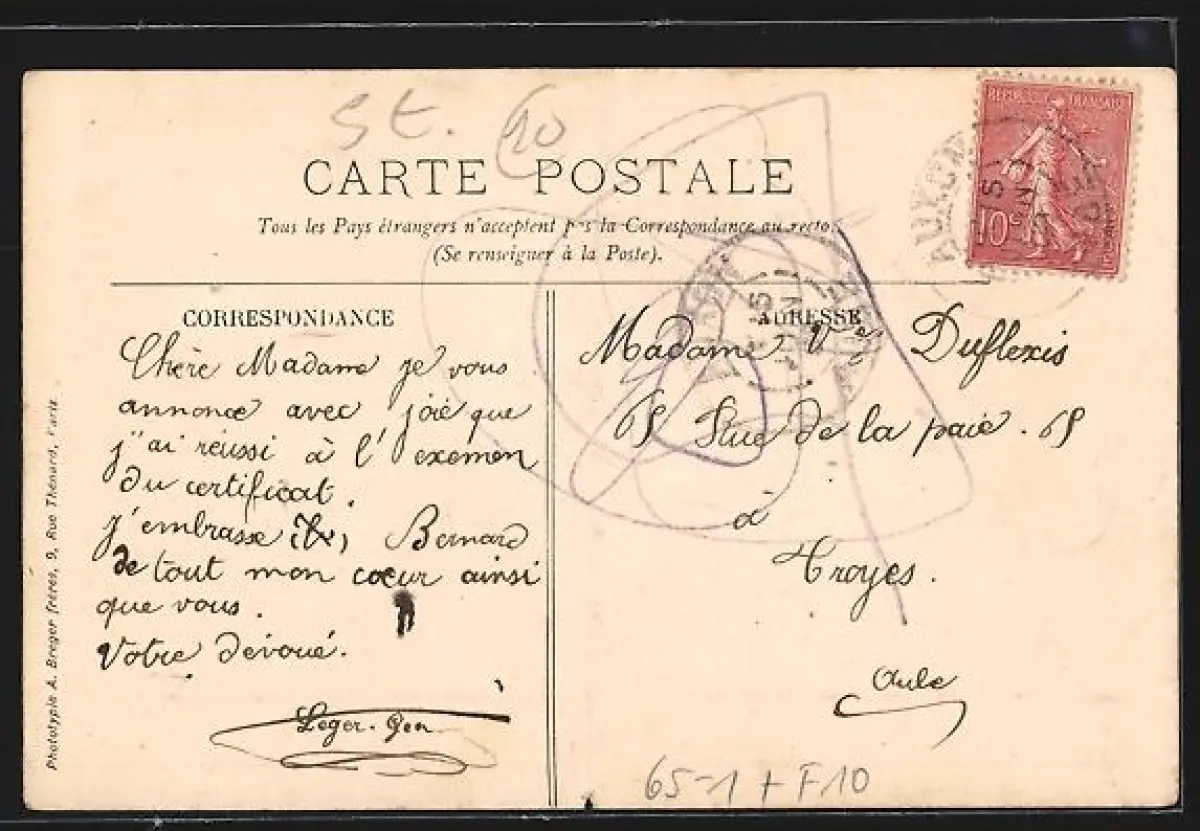 St. 10
CARTE POSTALE
Tous les Pays étrangers n'acceptent pas la Correspondance au recto.
(Se renseigner à la Poste).
REPUBLIQUE FRANÇAISE
10c
CORRESPONDANCE
Chère Madame je vous
annonce avec joie que
j'ai réussi à l'exemen
du certificat.
j'embrasse Bernard
de tout mon coeur ainsi
que vous.
Votre dévoué.
Leger
ADRESSE
Madame Ve Duflexis
65 Rue de la paie. 65
à
Troyes.
Aube
65-1 + F10
Phototypie A. Breger frères, 9, Rue Thénard, Paris